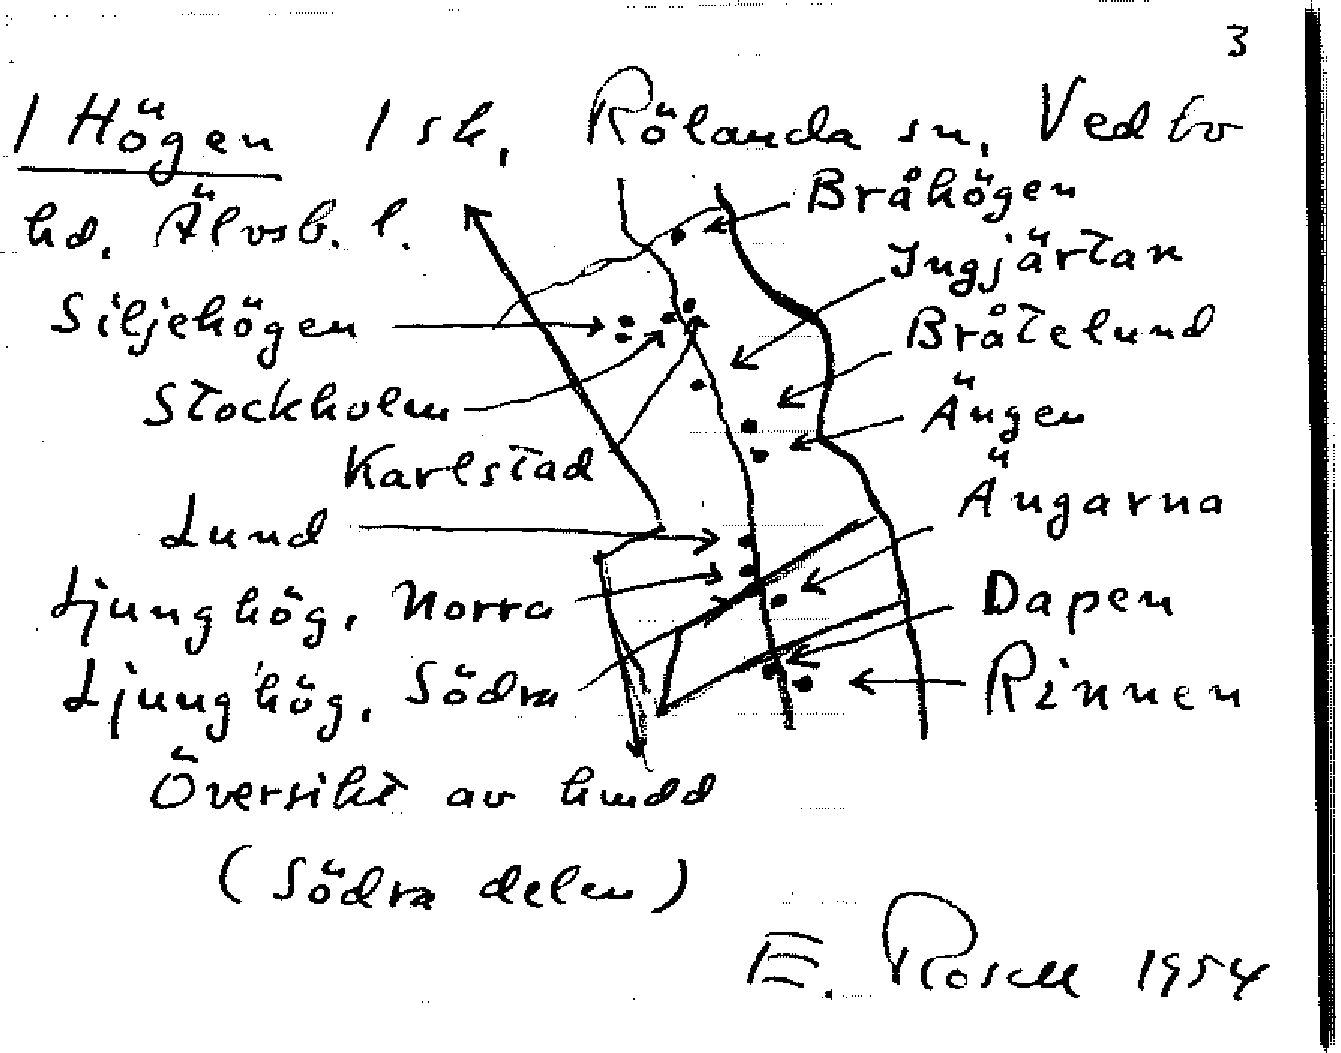 3
1 Högen 1 sk, Rölanda sn, Vedbo
hd. Älvsb. l.
Bråhögen
Ingjärtan
Siljehögen
Bråtelund
Stockholm
Ängen
Karlstad
Ängarna
Lund
Ljunghög, Norra
Dapen
Ljunghög, Södra
Rinnen
Översikt av hmdd
(Södra delen)
E. Rosell 1954